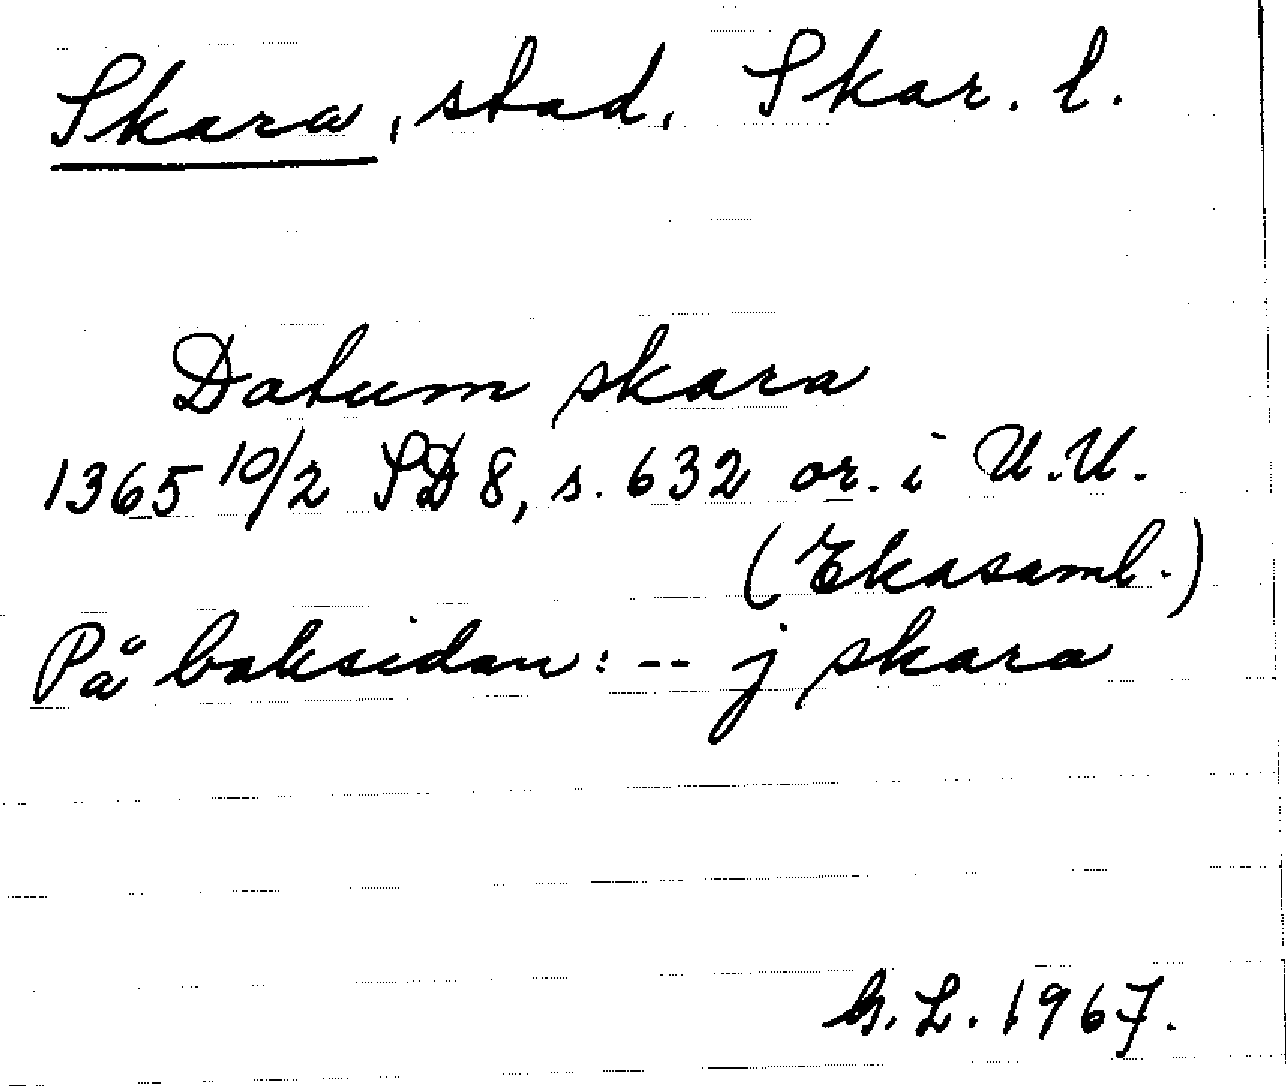 Skara, stad, Skar. l.
Datum skara
1365 10/2 SD 8, s. 632 or. i U.U.
(Ekasaml.)
På baksidan: -- j skara
G. L. 1967.